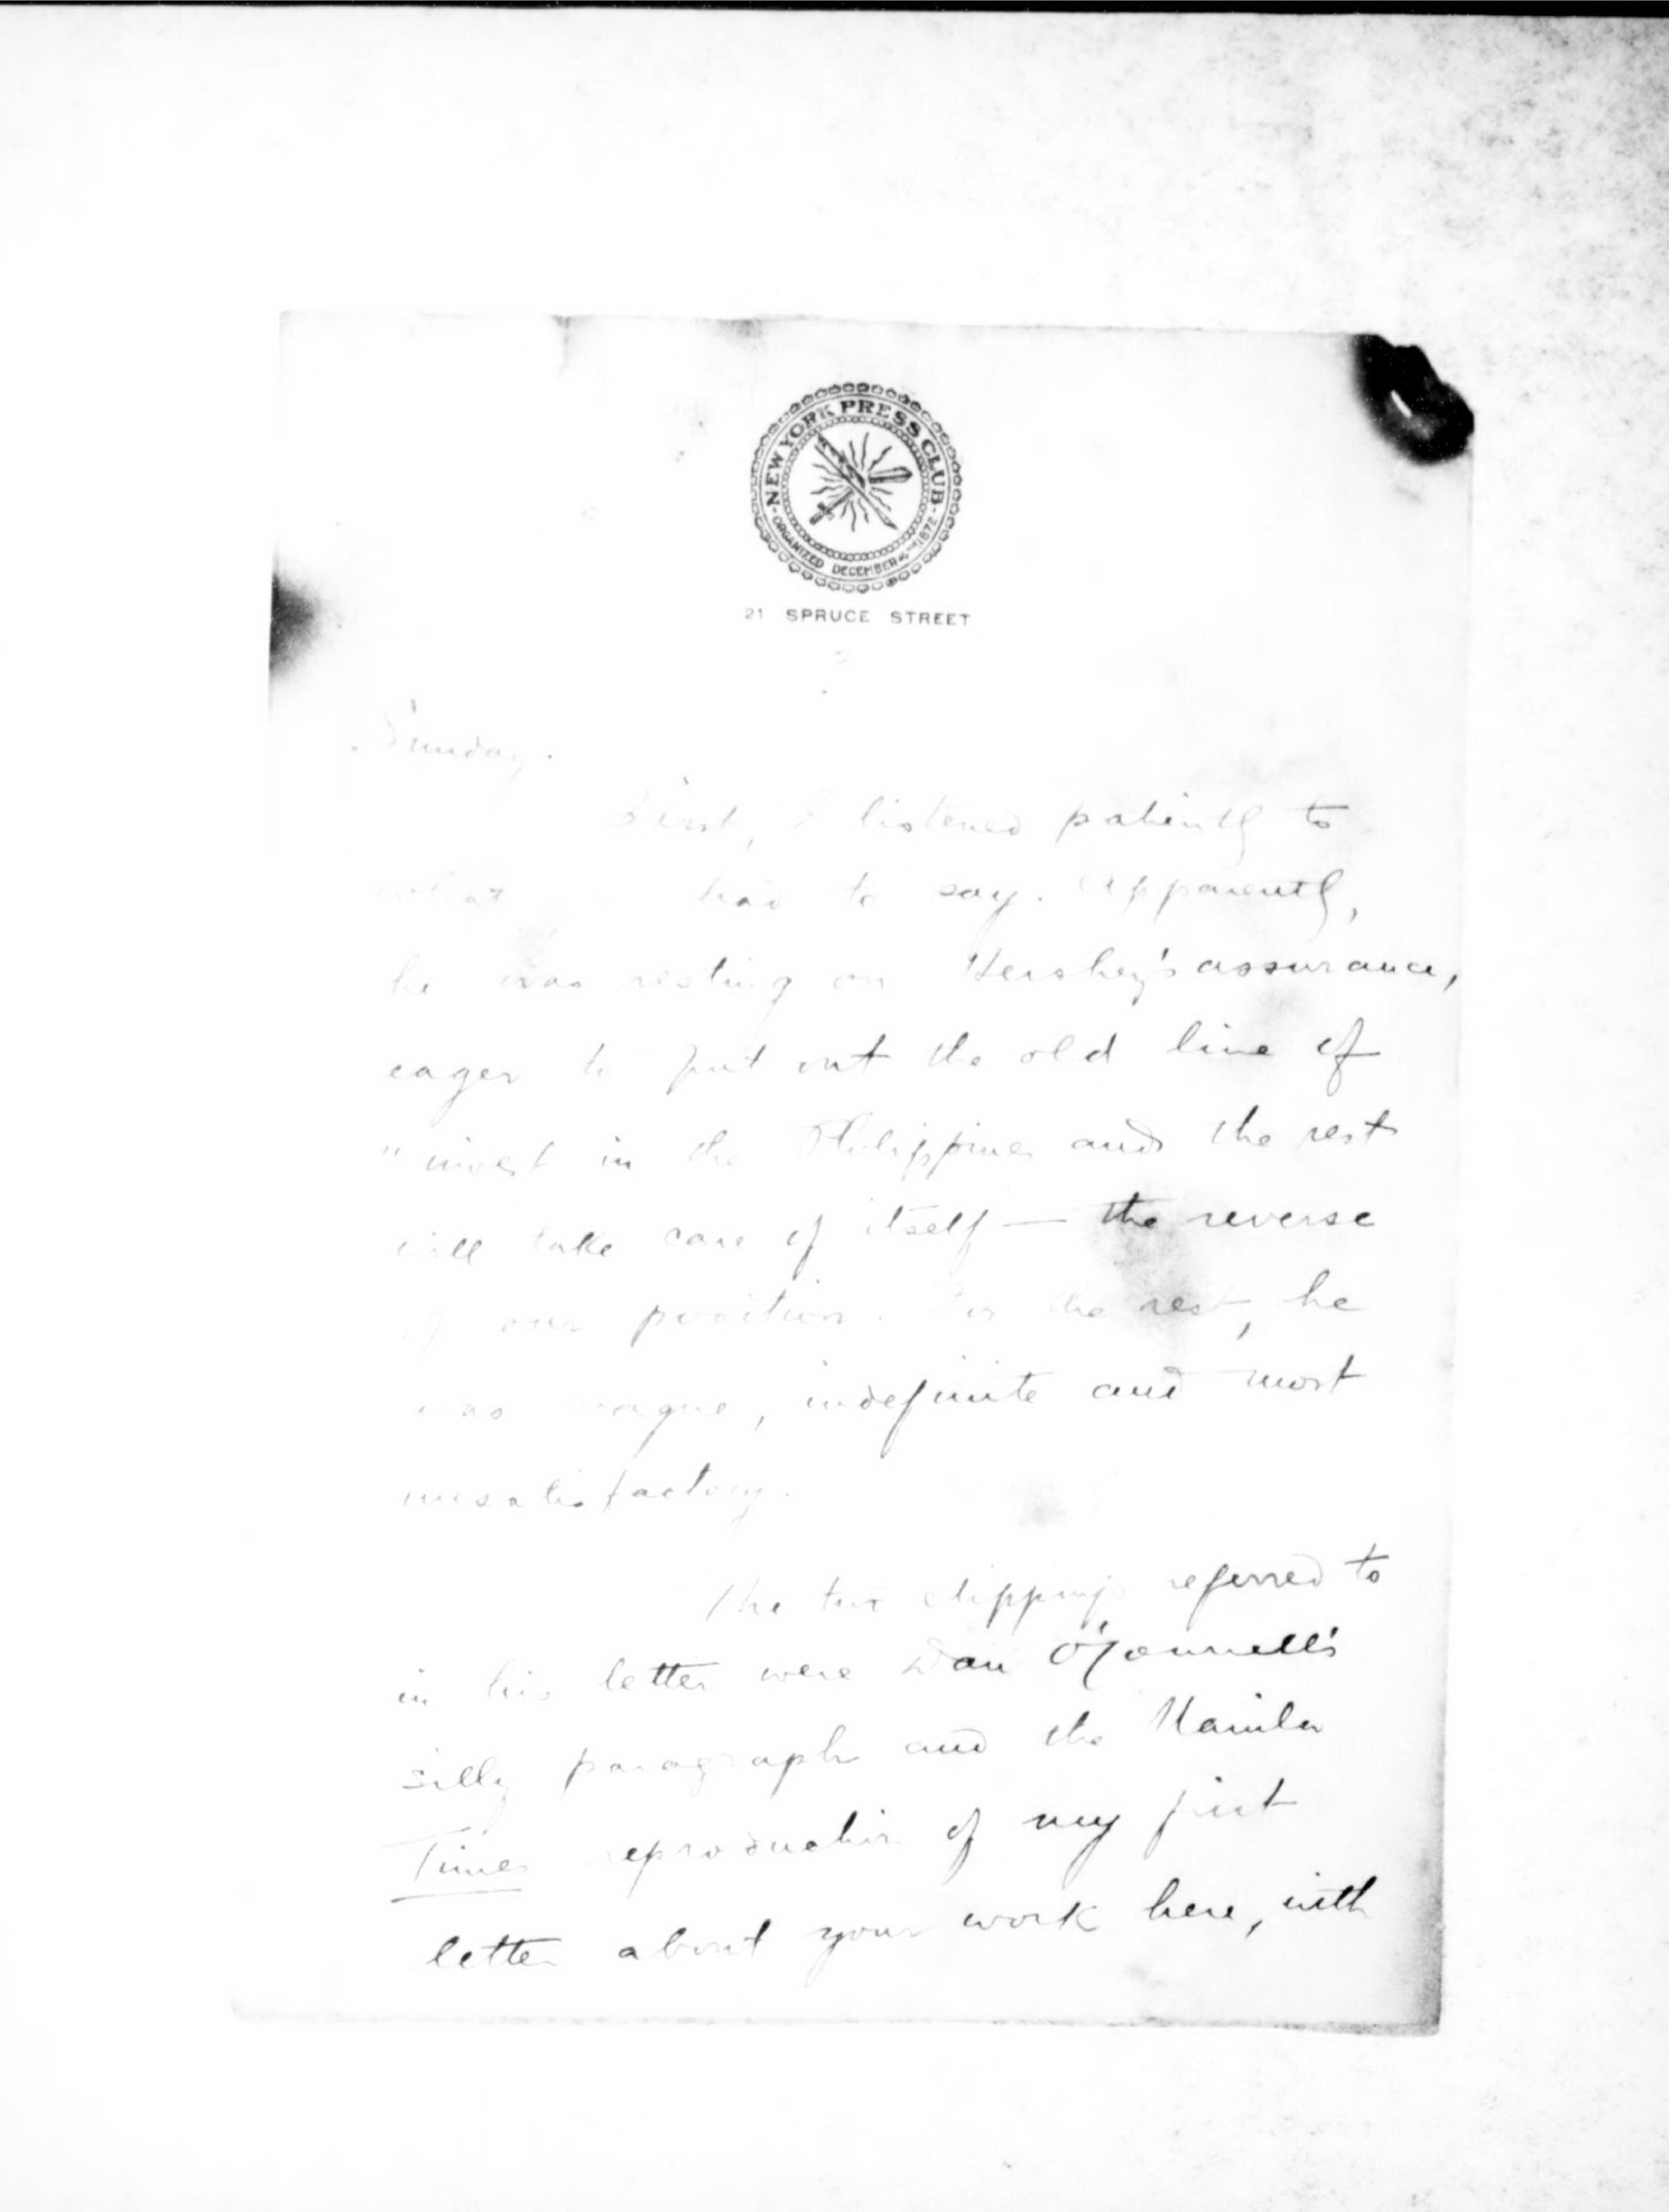 NEW YORK PRESS CLUB
ORGANIZED DECEMBER 1872
21 SPRUCE STREET
Sunday.
First, I listened patiently to
what had to say. Apparently,
he was resting on Hershey's assurance,
eager to put out the old line of
"invest in the Philippines and the rest
will take care of itself — the reverse
of our position. For the rest, he
was vague, indefinite and most
unsatisfactory.
The two clippings referred to
in his letter were Dan O'Connell's
silly paragraph and the Manila
Times reproduction of my first
letter about your work here, with